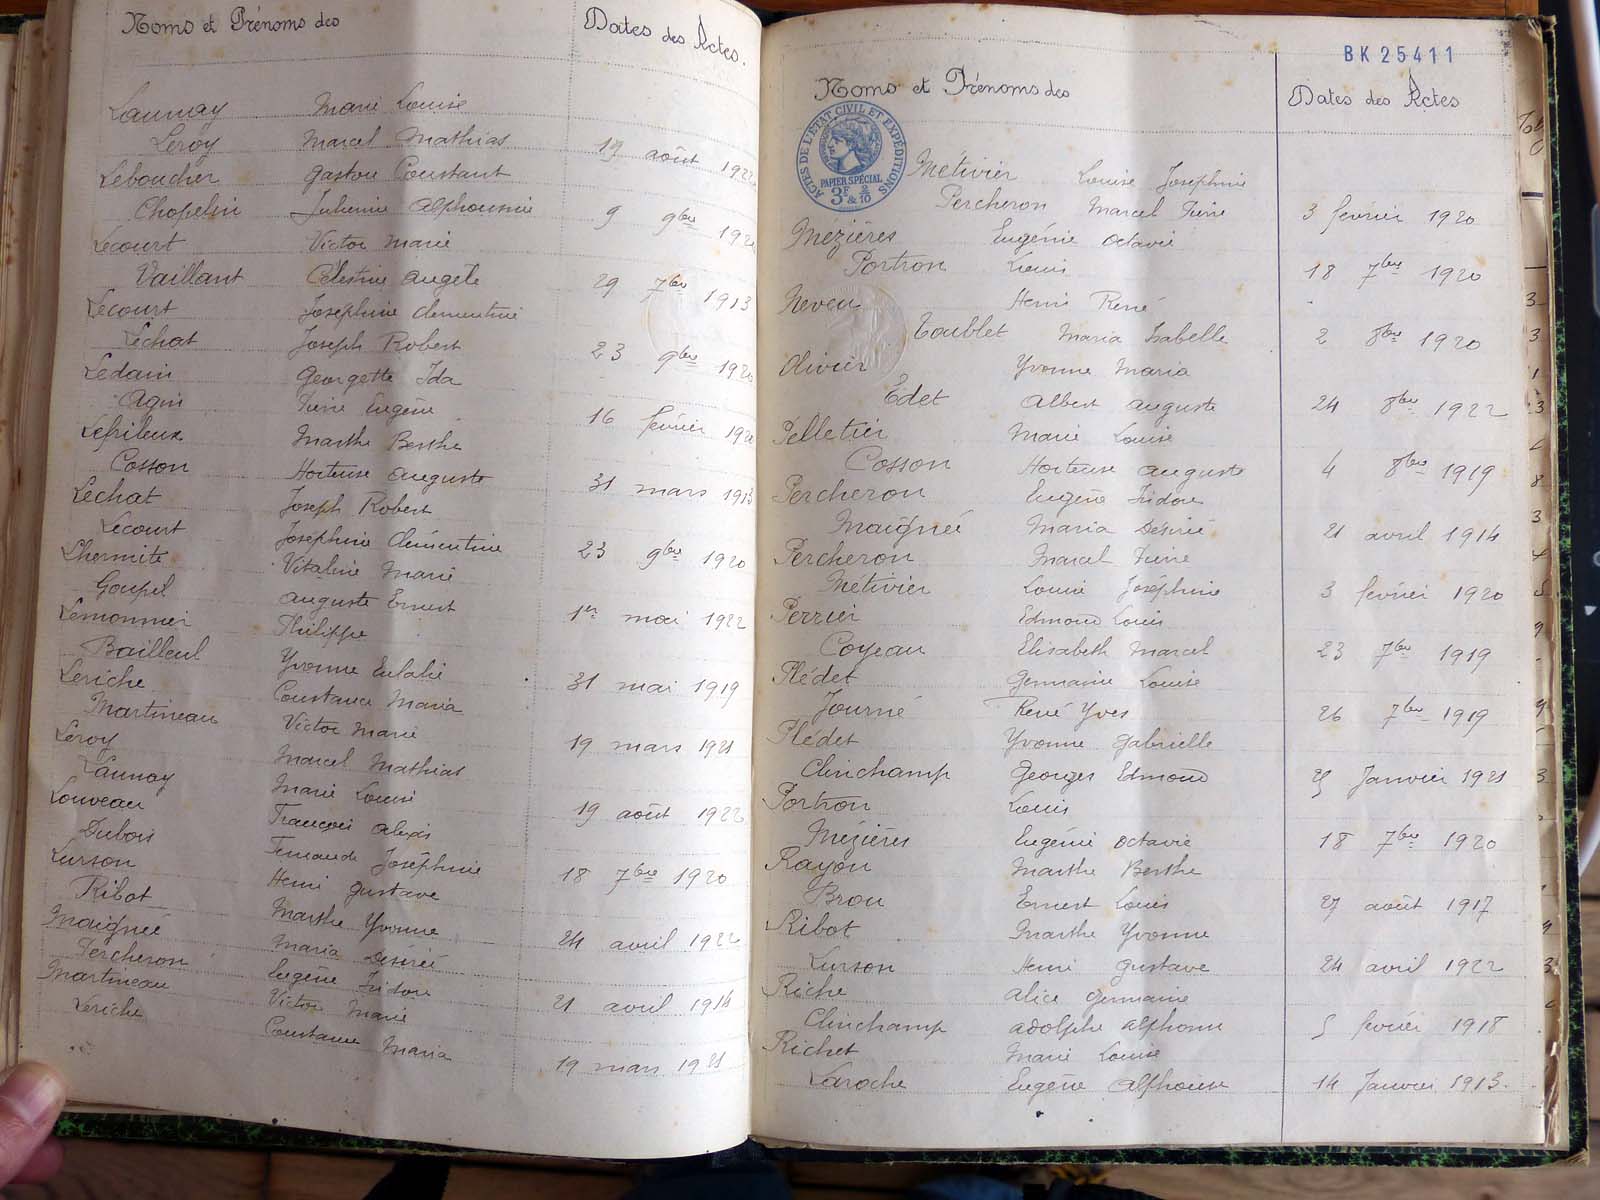 Noms et Prénoms des Dates des Actes.
Launay Marie Louise
Leroy Marcel Mathias 19 août 1922
Leboucher Gaston Constant
Chopelin Julienne Alphonsine 9 9bre
Lecourt Victor Marie
Vaillant Célestine Angèle 29 7bre 1913
Lecourt Joséphine Clémentine
Lechat Joseph Robert 23 9bre 1920
Ledain Georgette Ida
Agin Pierre Eugène 16 février
Lefrileux Marthe Berthe
Cosson Hortense Auguste 31 mars 1913
Lechat Joseph Robert
Lecourt Joséphine Clémentine 23 9bre 1920
Lhermite Vitaline Marie
Goupil Auguste Ernest 1er mai 1922
Lemonnier Philippe
Bailleul Yvonne Eulalie 31 mai 1919
Leriche Constance Maria
Martineau Victor Marie 19 mars 1921
Leroy Marcel Mathias
Launay Marie Louise 19 août 1922
Louveau François Alexis
Dubois Fernande Joséphine 18 7bre 1920
Lurson Henri Gustave
Ribot Marthe Yvonne 24 avril 1922
Maignée Maria Désirée
Percheron Eugène Isidore 21 avril 1914
Martineau Victor Marie
Leriche Constance Maria 19 mars 1921
BK 25411
Noms et Prénoms des Dates des Actes
ACTES DE L'ÉTAT CIVIL ET EXPÉDITIONS
PAPIER SPÉCIAL
3F & 2/10
Métivier Louise Joséphine
Percheron Marcel Pierre 3 février 1920
Mézières Eugénie Octavie
Portron Louis 18 7bre 1920
Neveu Henri René
Toublet Maria Isabelle 2 8bre 1920
Olivier Yvonne Maria
Edet Albert Auguste 24 8bre 1922
Pelletier Marie Louise
Cosson Hortense Auguste 4 8bre 1919
Percheron Eugène Isidore
Maignée Maria Désirée 21 avril 1914
Percheron Marcel Pierre
Métivier Louise Joséphine 3 février 1920
Perrier Edmond Louis
Coyeau Elisabeth Marcel 23 7bre 1919
Plédet Germaine Louise
Journé René Yves 26 7bre 1919
Plédet Yvonne Gabrielle
Clinchamp Georges Edmond 25 Janvier 1921
Portron Louis
Mézières Eugénie Octavie 18 7bre 1920
Rayon Marthe Berthe
Brou Ernest Louis 27 août 1917
Ribot Marthe Yvonne
Lurson Henri Gustave 24 avril 1922
Riche Alice Germaine
Clinchamp Adolphe Alphonse 5 février 1918
Richet Marie Louise
Laroche Eugène Alphonse 14 Janvier 1913.